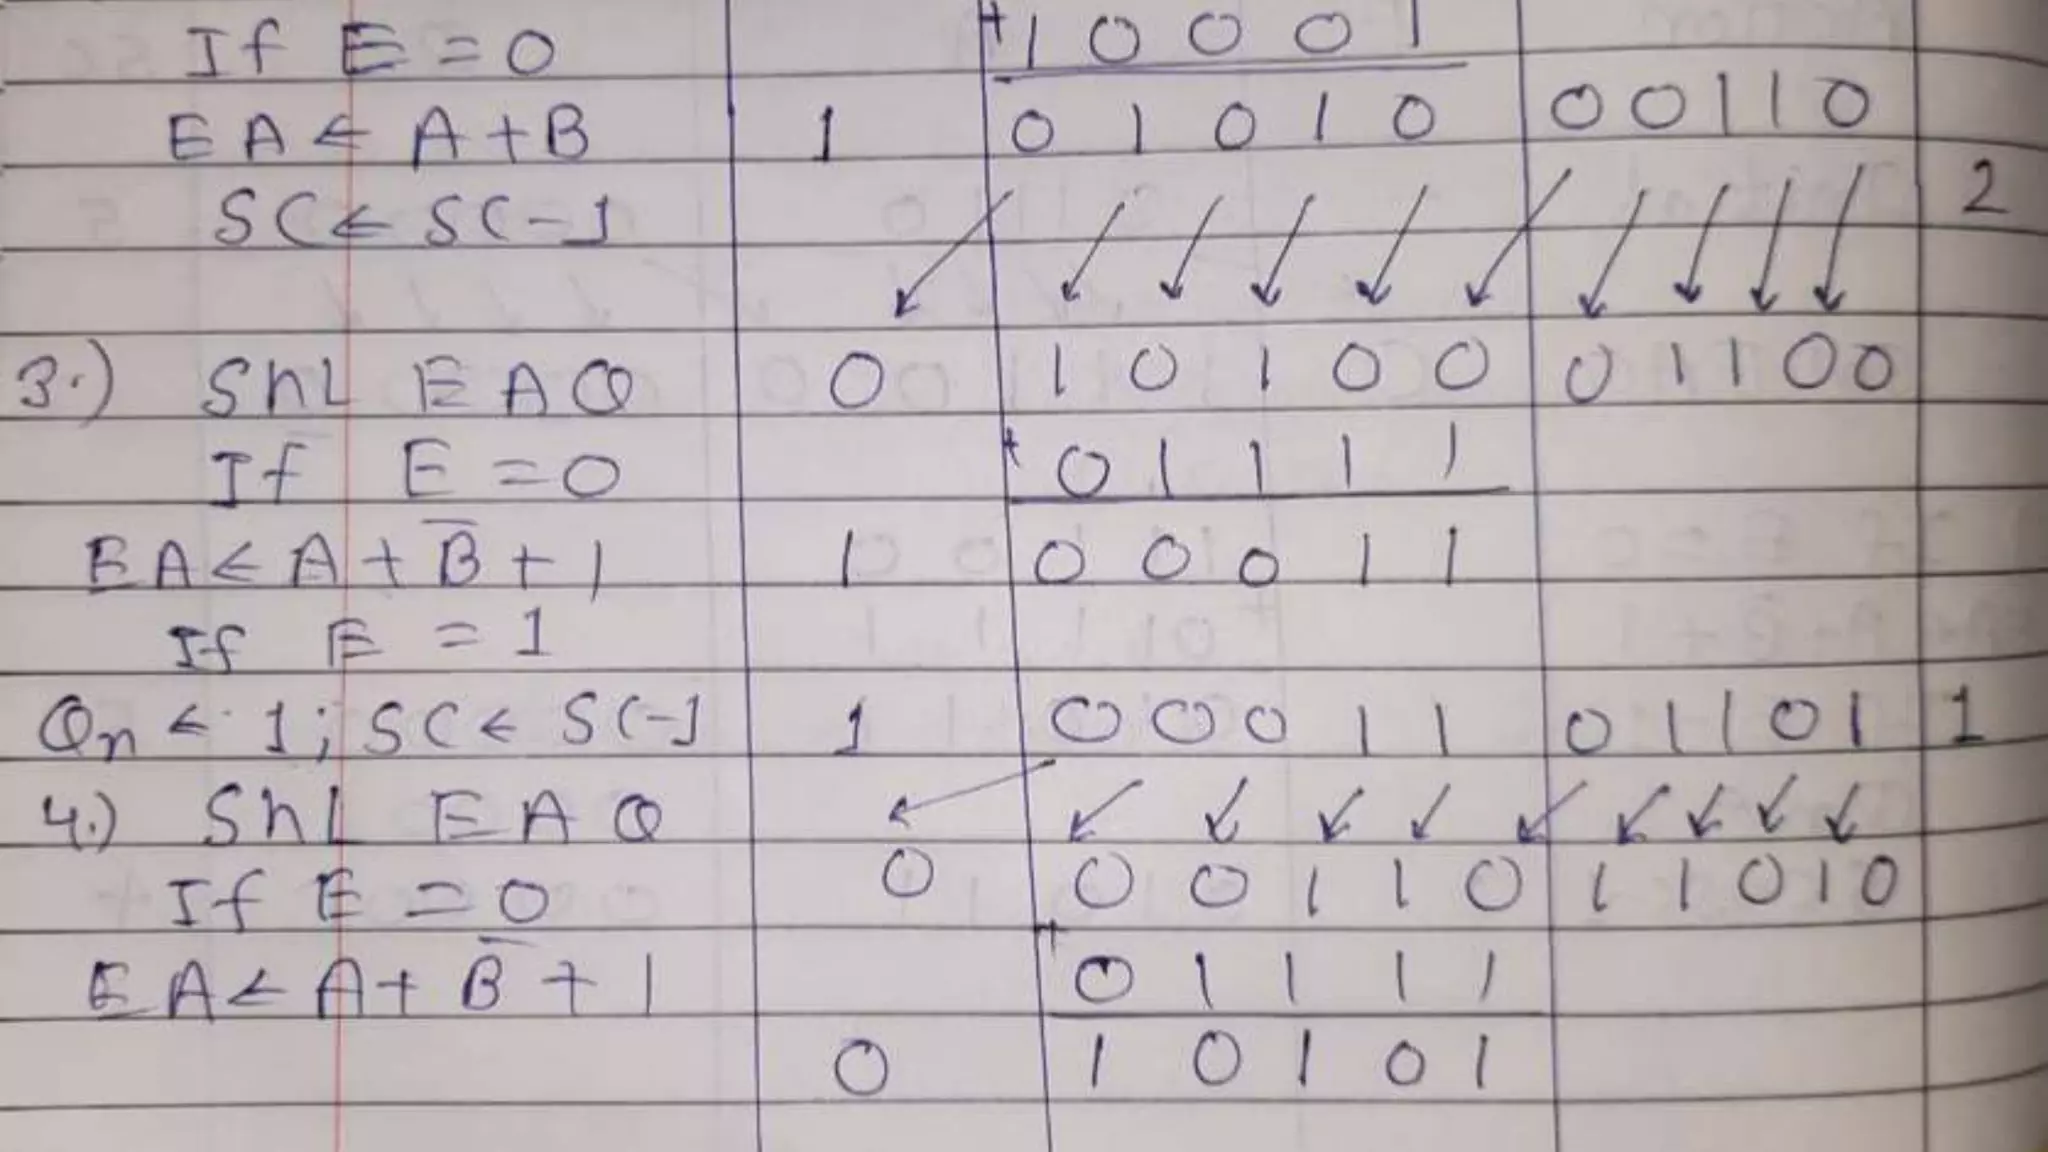 If E = 0 + 1 0 0 0 1
EA ← A + B 1 0 1 0 1 0 0 0 1 1 0
SC ← SC - 1 2
3.) ShL E A Q 0 1 0 1 0 0 0 1 1 0 0
If E = 0 + 0 1 1 1 1
EA ← A + B̅ + 1 1 0 0 0 1 1
If E = 1
Qn ← 1; SC ← SC-1 1 0 0 0 1 1 0 1 1 0 1 1
4.) ShL E A Q
If E = 0 0 0 0 1 1 0 1 1 0 1 0
EA ← A + B̅ + 1 + 0 1 1 1 1
0 1 0 1 0 1